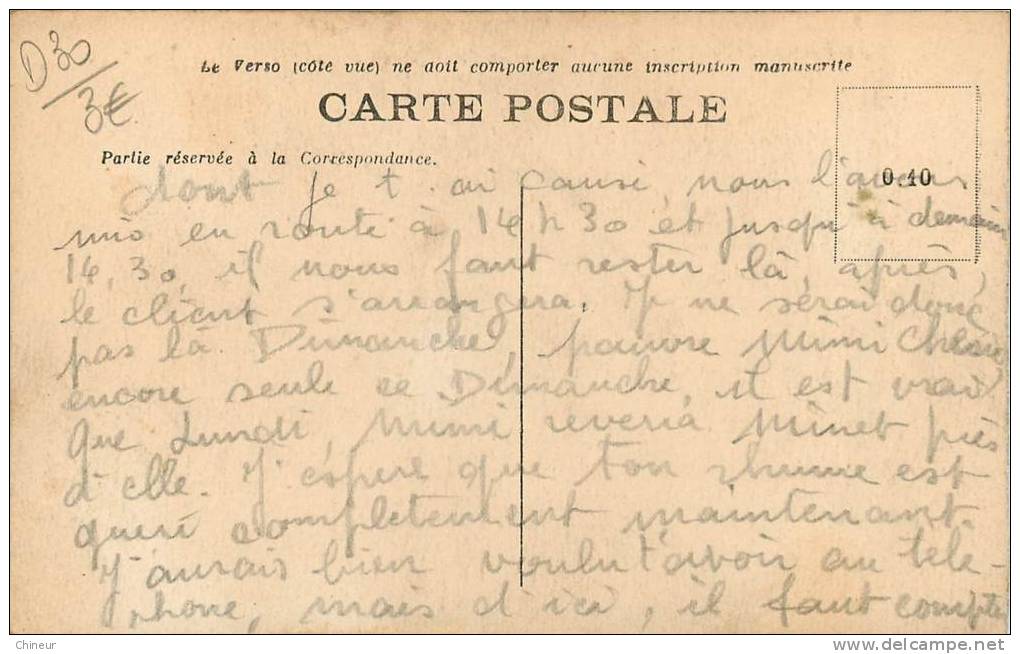 D30
3€
Le Verso (côté vue) ne doit comporter aucune inscription manuscrite
CARTE POSTALE
Partie réservée à la Correspondance.
0.10
dont je t'ai causé nous l'avons
mis en route à 14 h 30 et jusqu'à demain
14,30, il nous faut rester là, après,
le client s'arrangera. Je ne serai donc
pas là Dimanche, pauvre Mimi Chérie,
encore seule ce Dimanche, il est vrai
que Lundi, Mimi reverra Minet près
d'elle. J'espère que ton rhume est
guéri complètement maintenant.
J'aurais bien voulu t'avoir au télé-
phone, mais d'ici, il faut compter
Chineur
www.delcampe.net